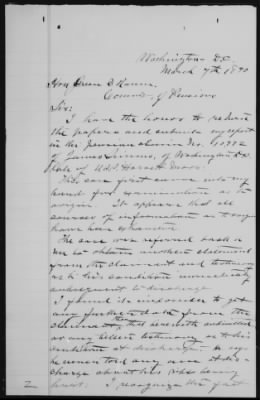 Washington D.C.
March 7th 1890
Hon Green B. Raum,
Comm'r of Pensions
Sir:
I have the honor to return
the papers and submit my report
in the pension claim No.
of James of Washington D.C.
late of U.S.S.
This case first came into my
hand for examination as to
origin. It appears that all
sources of information as to origin
have been exhausted.
The case was referred back to
me to obtain another statement
from the claimant and testimony
as to his condition immediately
subsequent to discharge.
I found it impossible to get
any further data from the
claimant than herewith submitted
or any testimony as to his
condition at discharge. He says
he never told any one at dis-
charge about his ribs being
hurt. I recognize the fact